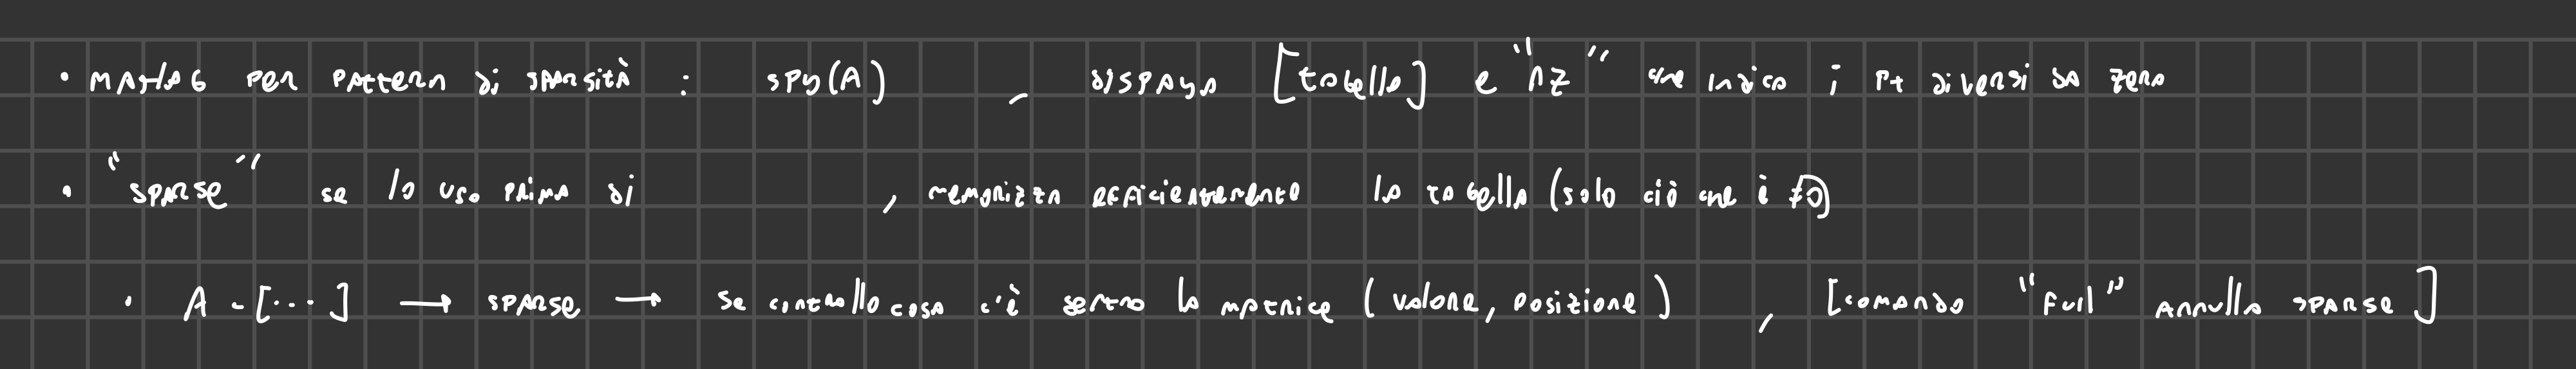 • MATLAB PER PATTERN di SPARSITÀ : SPY(A) , DISPAYA [tabella] e "nz" che indica i Pt diversi da zero
• "SPARSE" se lo uso PRIMA di , memorizza efficientemente la tabella (solo ciò che è ≠0)
• A = [...] → SPARSE → se controllo cosa c'è dentro la matrice (valore, posizione) , [comando "full" annulla SPARSE]